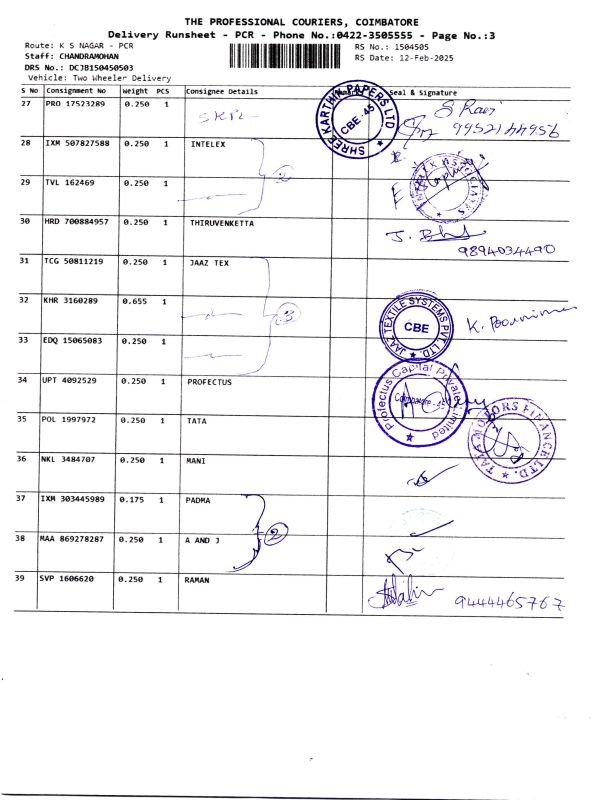 THE PROFESSIONAL COURIERS, COIMBATORE
Delivery Runsheet - PCR - Phone No.:0422-3505555 - Page No.:3
Route: K S NAGAR - PCR RS No.: 1504505
Staff: CHANDRAMOHAN RS Date: 12-Feb-2025
DRS No.: DCJB150450503
Vehicle: Two Wheeler Delivery
S No Consignment No Weight PCS Consignee Details Seal & Signature
27 PRO 17523289 0.250 1 SHREE KARTHIK PAPERS LTD CBE-45 S Ravi
9952144956
28 IXM 507827588 0.250 1 INTELEX
29 TVL 162469 0.250 1 2
30 HRD 700884957 0.250 1 THIRUVENKETTA
9894034490
31 TCG 50811219 0.250 1 JAAZ TEX
32 KHR 3160289 0.655 1 3 JAAZ TEXTILE SYSTEMS PVT. LTD. CBE K. Poornima
33 EDQ 15065083 0.250 1
34 UPT 4092529 0.250 1 PROFECTUS Profectus Capital Private Limited Coimbatore
35 POL 1997972 0.250 1 TATA TATA MOTORS FINANCE LTD.
36 NKL 3484707 0.250 1 MANI
37 IXM 303445989 0.175 1 PADMA
2
38 MAA 869278287 0.250 1 A AND J
39 SVP 1606620 0.250 1 RAMAN 9444465767